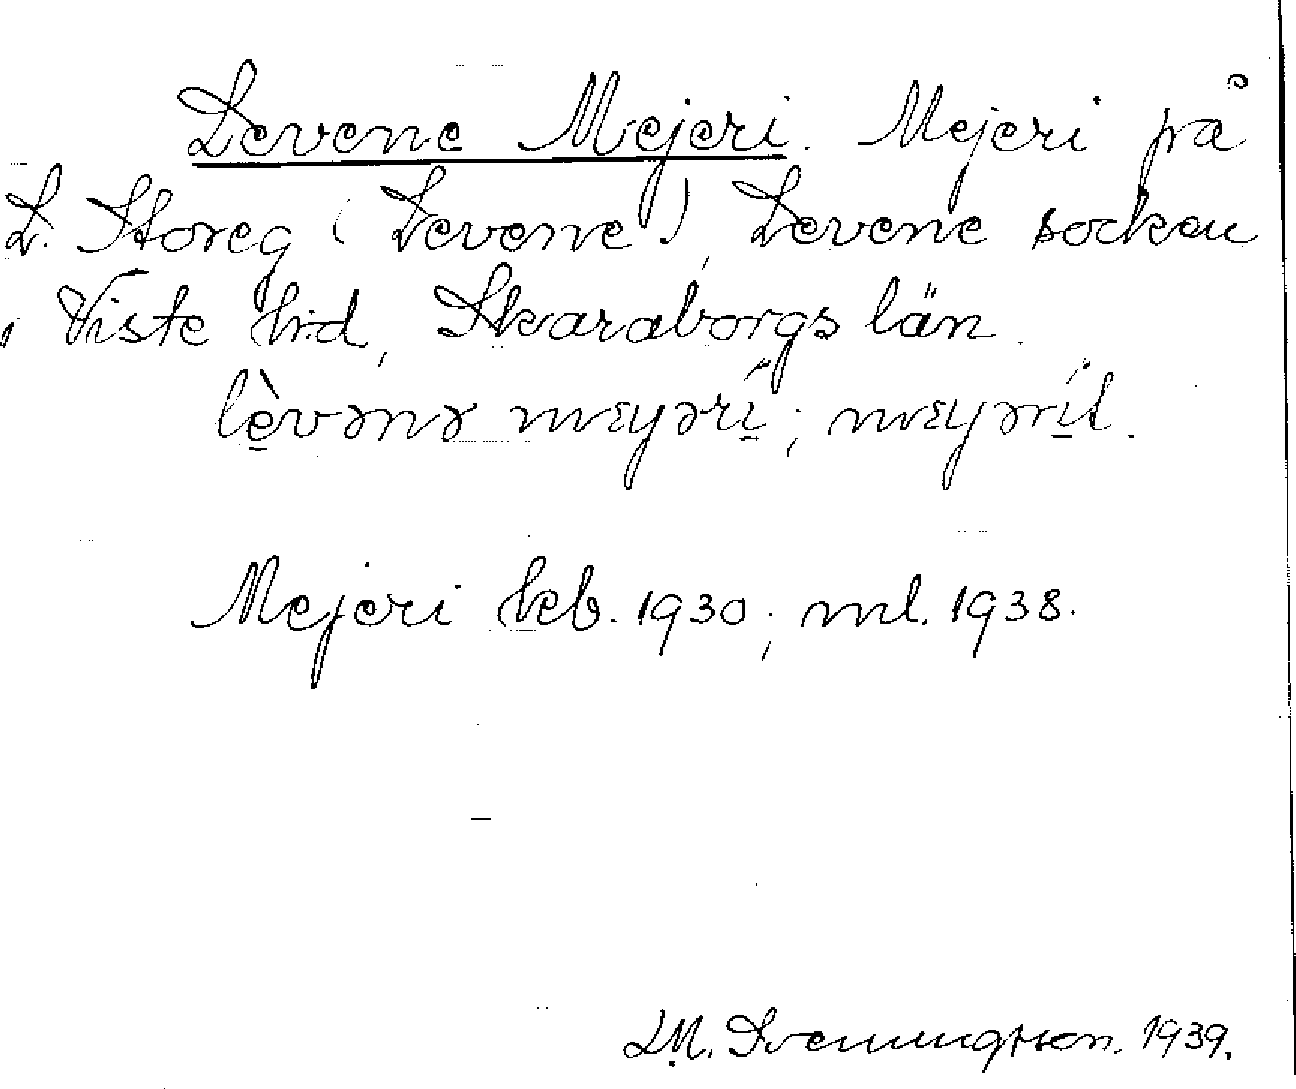 Levene Mejeri. Mejeri på
L. Storeg (Levene), Levene socken
, Viste hrd, Skaraborgs län.
lèvənə mɛyərí; mɛyərít.
Mejeri keb. 1930; ml. 1938.
D.M. Svenungsson. 1939.